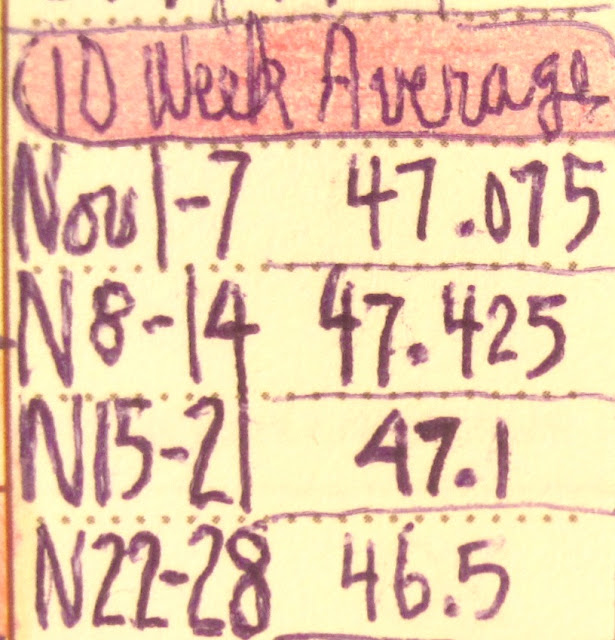 10 Week Average
Nov 1-7 47.075
N 8-14 47.425
N15-21 47.1
N22-28 46.5